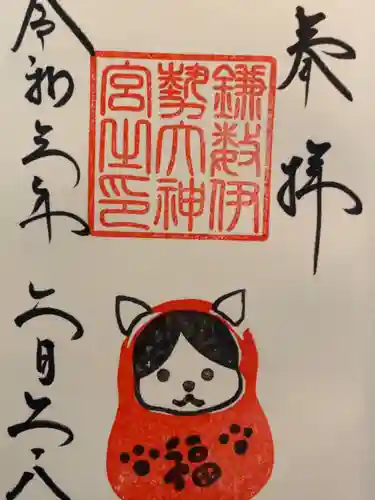 奉拝
鎌数伊
勢大神
宮之印
福
令和五年
六月二八